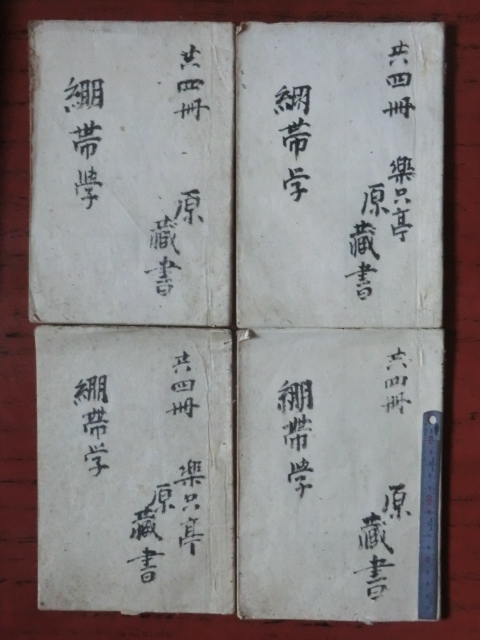 共四冊
繃帯学
原
蔵書
共四冊
楽只亭
繃帯学
原
蔵書
共四冊
繃帯学
楽只亭
原
蔵書
共四冊
繃帯学
原
蔵書